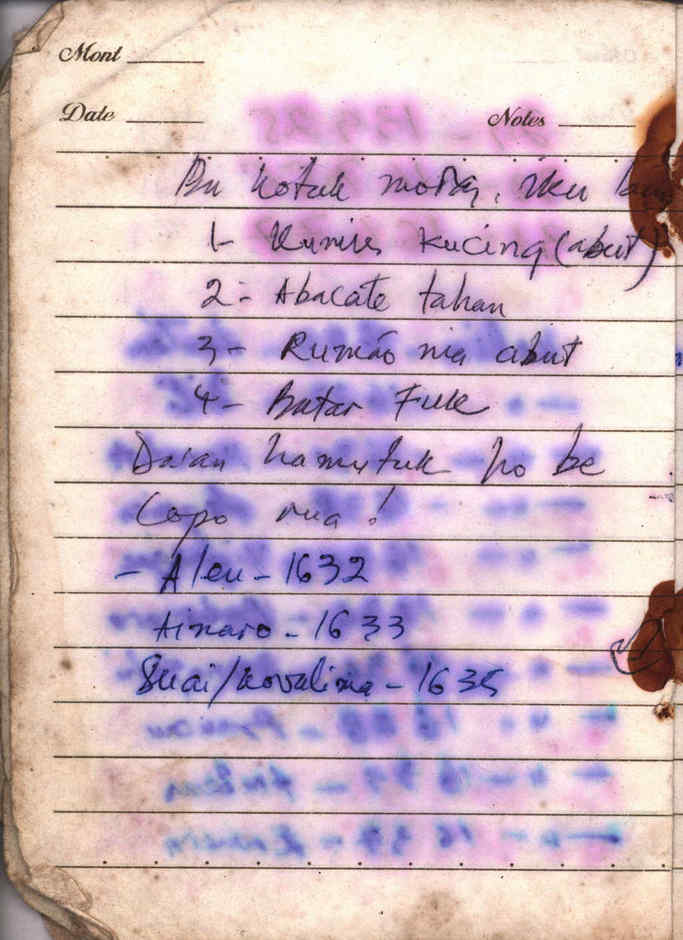 Mont
Date
Notes
Bu kotuk moras, iku
1- Kumis Kucing (abut)
2- Abacate tahan
3- Rumão nia abut
4- Batar Fuik
Da'an hamutuk ho be
Copo rua!
- Aleu - 1632
Ainaro - 1633
Suai/Kovalima - 1635